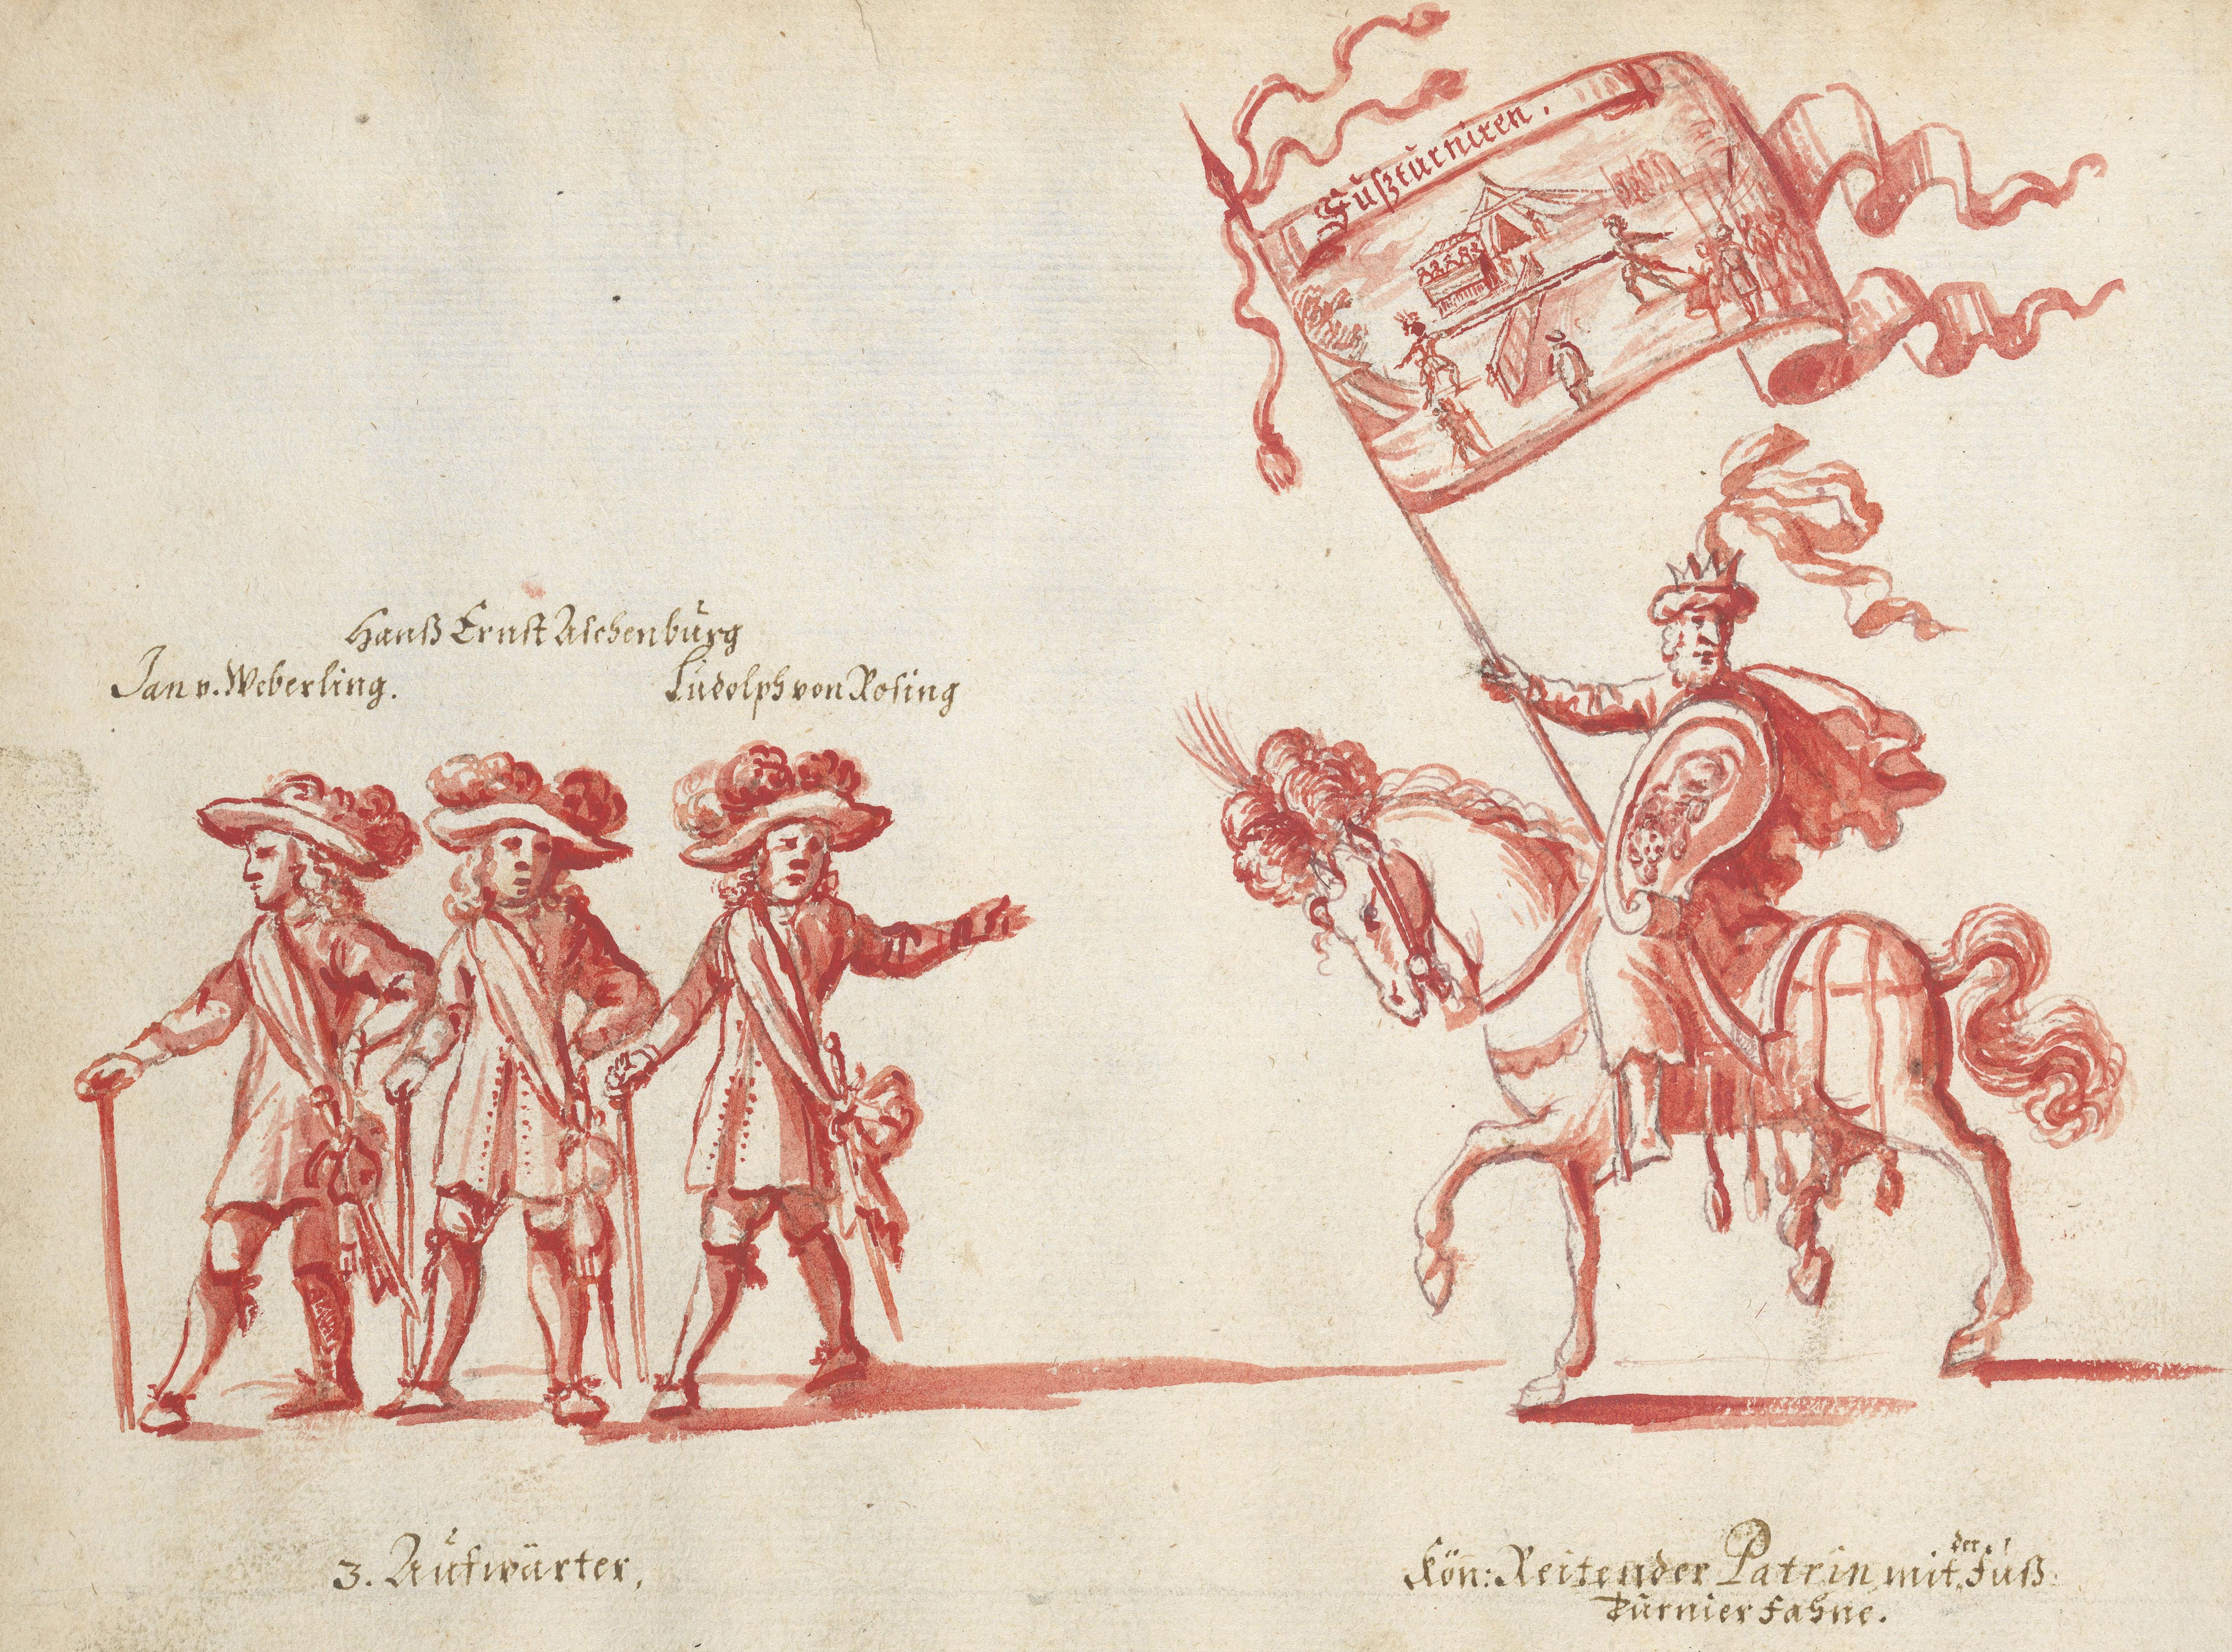 Fußturniren.
Hanß Ernst Aschenburg
Jan v. Weberling.
Ludolph von Rosing
3. Aufwärter,
Kön: Reitender Patrin mit der Fuß:
Turnier Fahne.